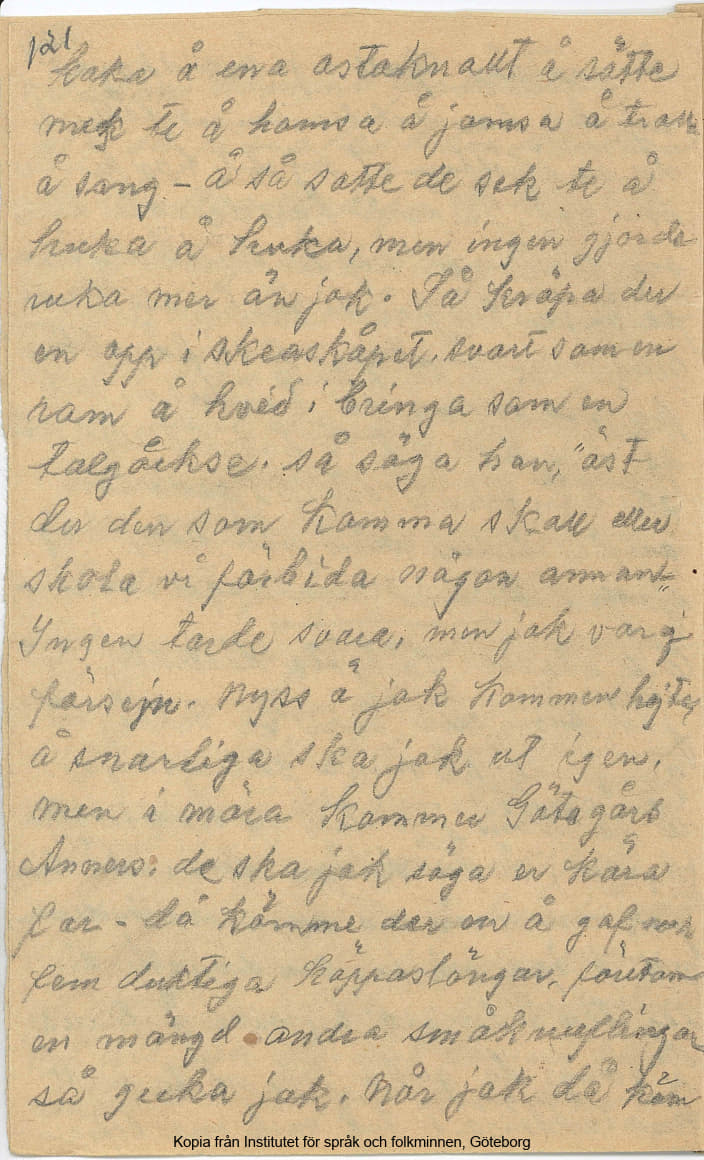 121
kaka å ena ostaknallt å sätte
mek te å hamsa å jamsa å tralla
å sang - Å så satte de sek te å
huka å huka, men ingen gjorde
ruka mer än jak. Så kräpa der
en opp i skeaskåpet. svart som en
ram å hvid i bringa som en
talgåckse. så säga han, "äst
der den som komma skall eller
skola vi förbida någon annan"
Yngen torde svara, men jak var ej
försejn. Nyss å jak kommen hejte,
å snarliga ska jak ut igen,
men i möra kommer Götagårs
Anners. de ska jak säga er kära
far - då kömme der en å gaf mek
fem duktiga käppaslängar, förutom
en mängd andra småknufflingar
så guka jak. När jak då kom
Kopia från Institutet för språk och folkminnen, Göteborg